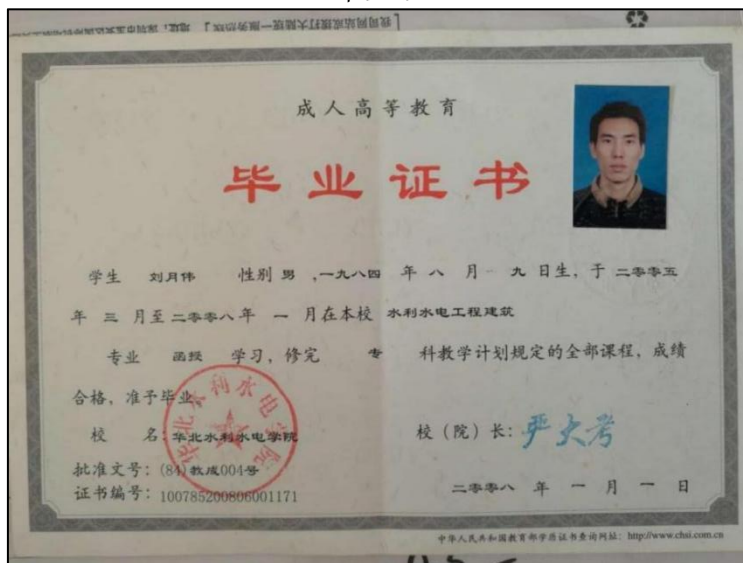 成人高等教育
毕业证书
学生 刘月伟 性别 男 ,一九八四 年 八 月 九 日生，于 二零零五
年 三 月至 二零零八 年 一 月在本校 水利水电工程建筑
专业 函授 学习，修完 专 科教学计划规定的全部课程，成绩
合格，准予毕业。
校 名：华北水利水电学院
校（院）长：严大考
批准文号：(84)教成004号
证书编号：100785200806001171
二零零八 年 一 月 一 日
华北水利水电学院
中华人民共和国教育部学历证书查询网址：http://www.chsi.com.cn